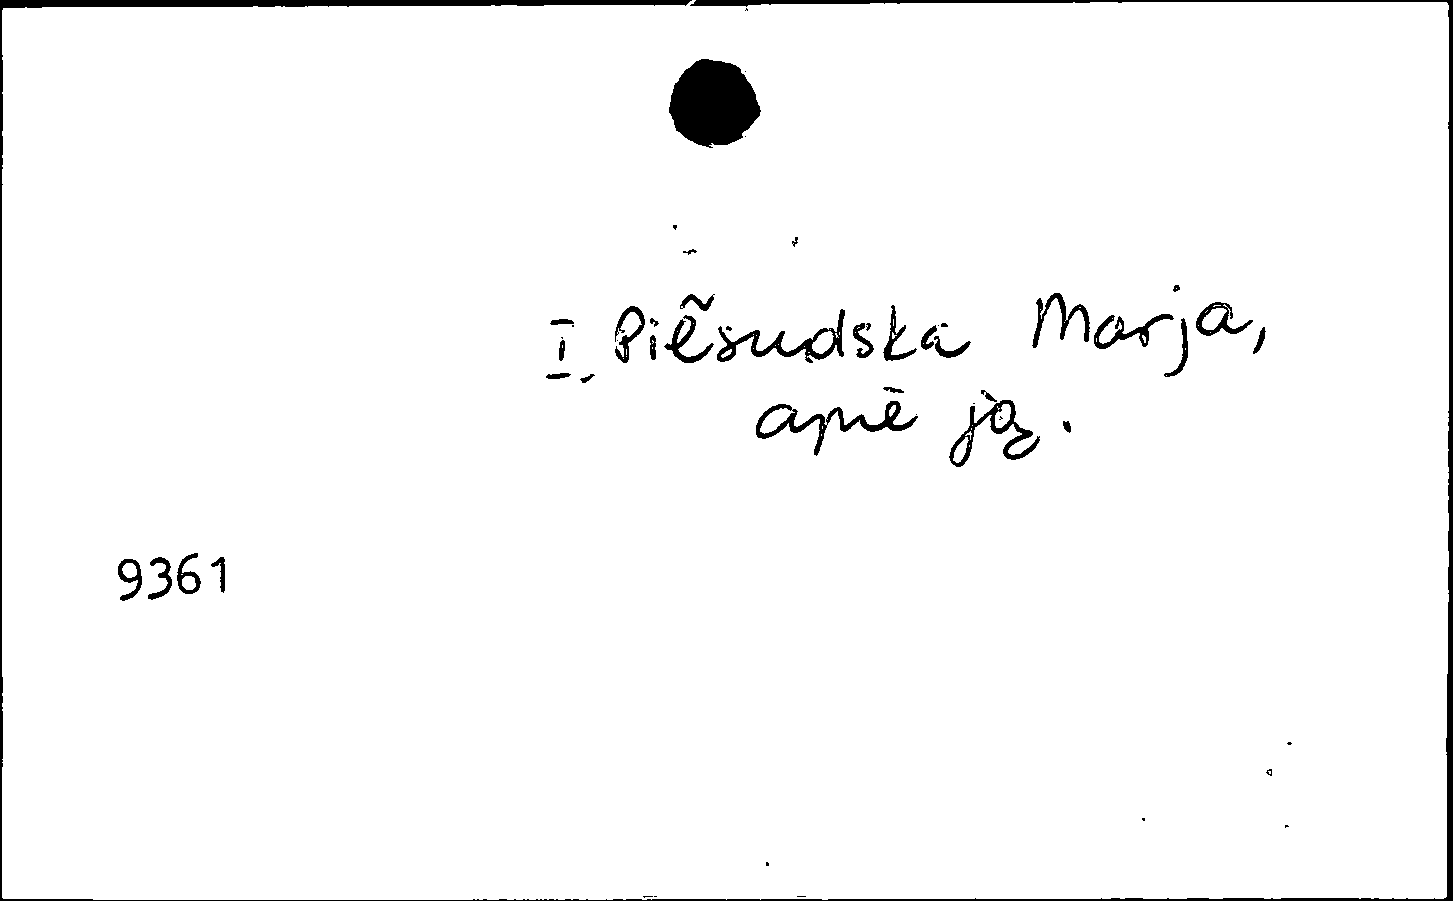 I. Piẽsudska Marja,
apie ją.
9361